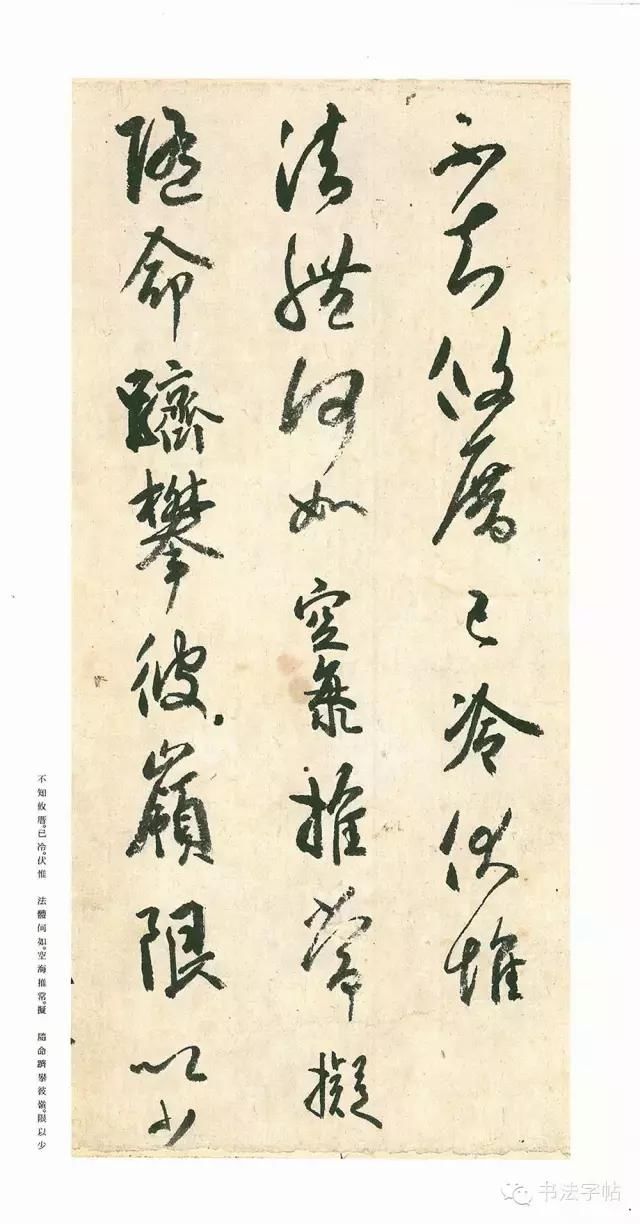 不知攸厝已冷伏惟
法體何如空海推常擬
隨命躋攀彼嶺限以少
不知攸厝。已冷。伏惟　法體何如。空海推常。擬　隨命躋攀彼嶺。限以少
书法字帖